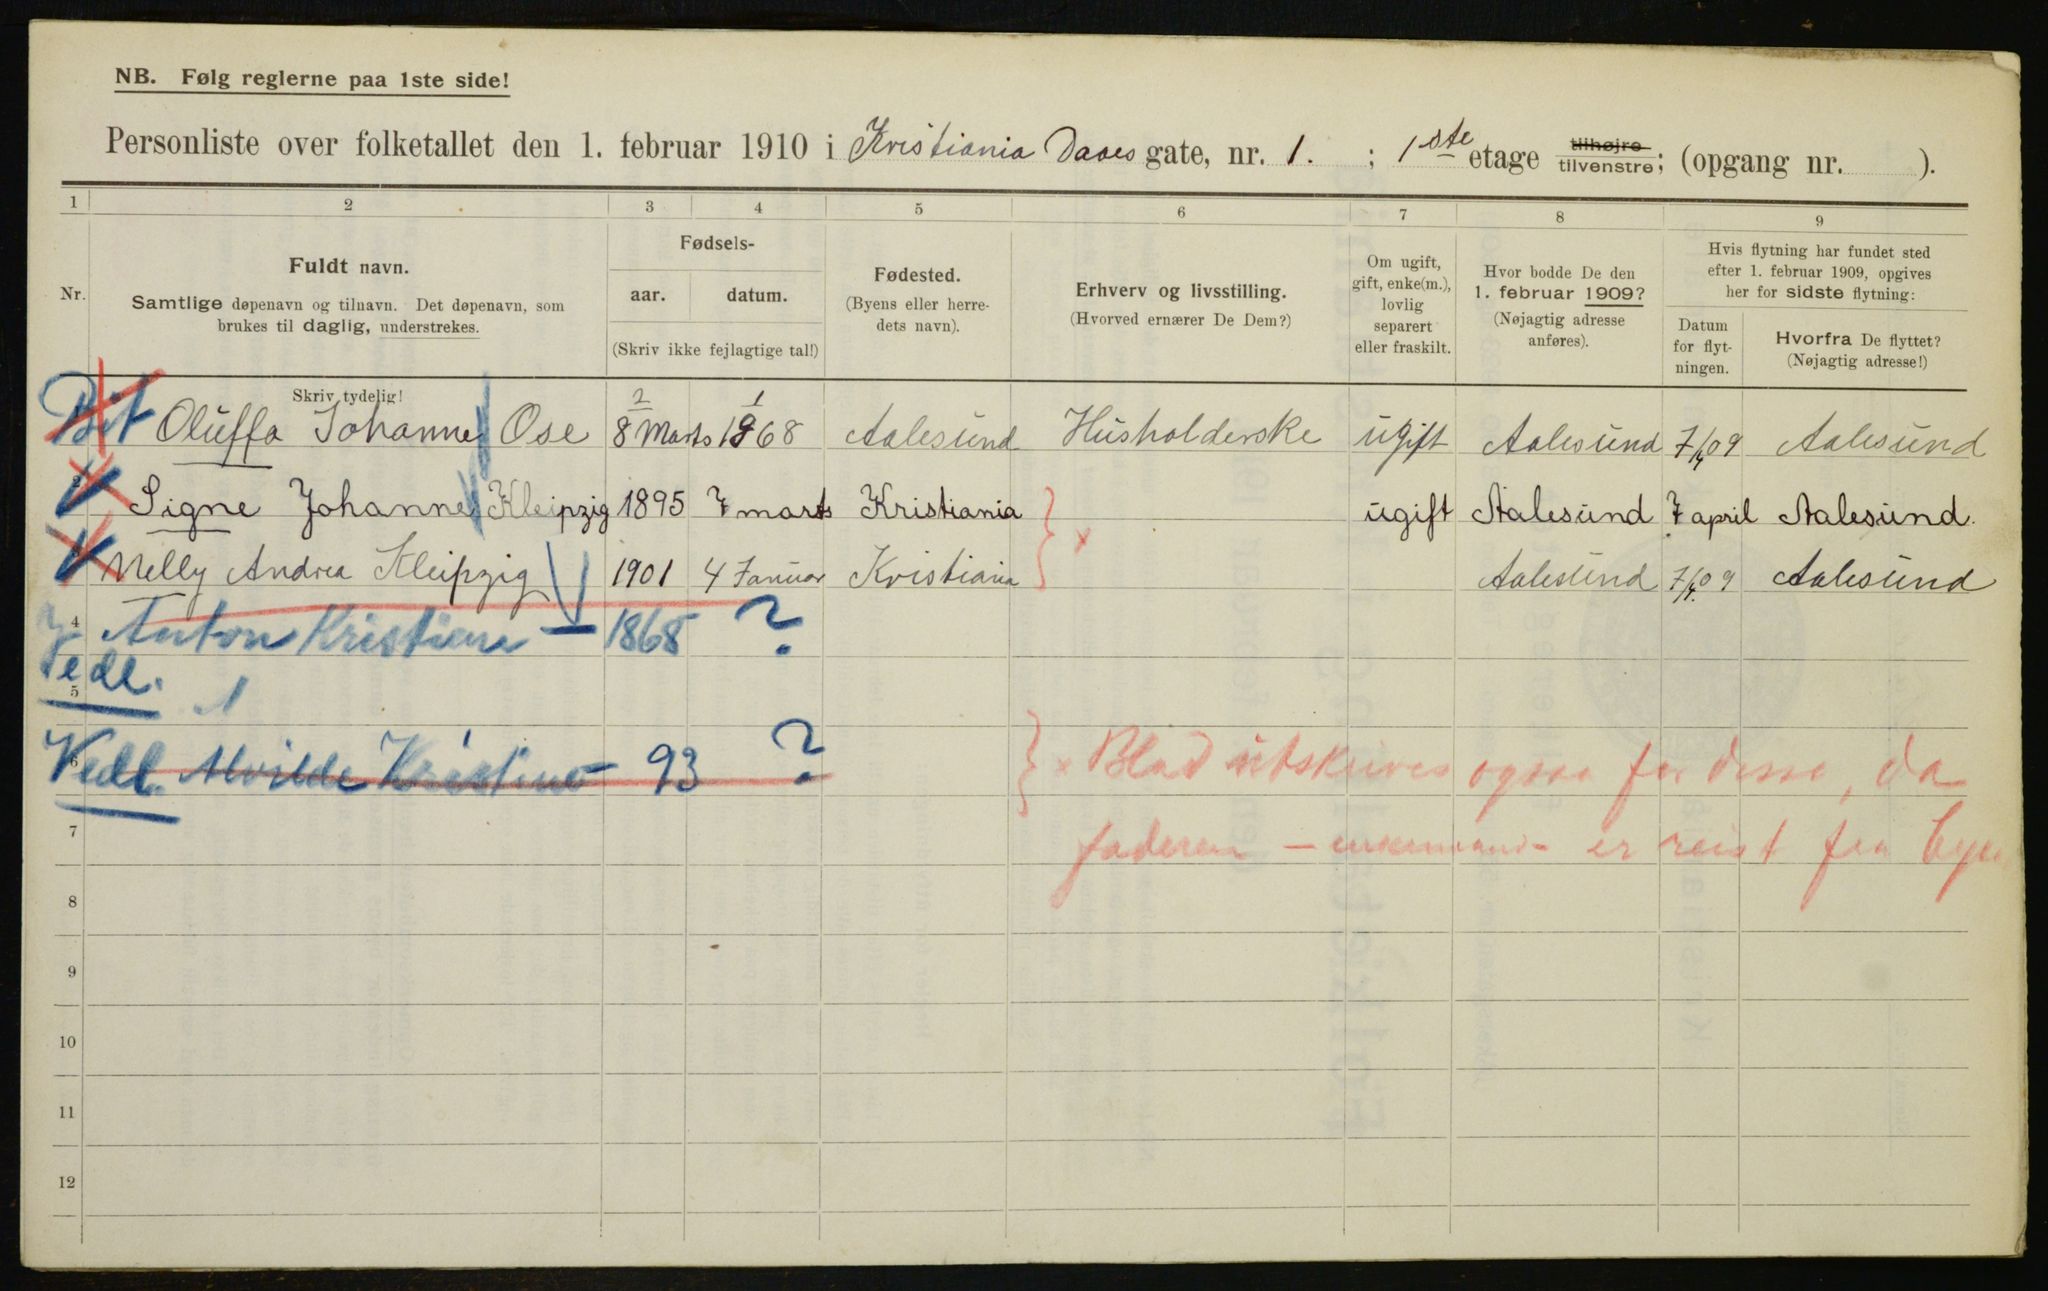 NB. Følg reglerne paa 1ste side!
Personliste over folketallet den 1. februar 1910 i Kristiania Daaes gate, nr. 1. ; 1ste etage tilhøjre tilvenstre; (opgang nr. ).
1 2 3 4 5 6 7 8 9
Nr.
Fuldt navn.
Samtlige døpenavn og tilnavn. Det døpenavn, som
brukes til daglig, understrekes.
Fødsels-
aar. datum.
(Skriv ikke fejlagtige tal!)
Fødested.
(Byens eller herre-
dets navn).
Erhverv og livsstilling.
(Hvorved ernærer De Dem?)
Om ugift,
gift, enke(m.),
lovlig
separert
eller fraskilt.
Hvor bodde De den
1. februar 1909?
(Nøjagtig adresse
anføres).
Hvis flytning har fundet sted
efter 1. februar 1909, opgives
her for sidste flytning:
Datum
for flyt-
ningen.
Hvorfra De flyttet?
(Nøjagtig adresse!)
Skriv tydelig!
2 1
Oluffa Johanne Ose 8 Marts 1868 Aalesund Husholderske ugift Aalesund 7/4 09 Aalesund
2 Signe Johanne Kleipzig 1895 7 marts Kristiania ugift Aalesund 7 april Aalesund.
Nelly Andrea Kleipzig 1901 4 Januar Kristiania Aalesund 7/4 09 Aalesund
4 Anton Kristian — 1868 ?
Vedl.
5
6 Vedl. Alvilde Kristine — 93 ? x Blad utskrives ogsaa for disse, da
7 faderen — enkemand — er reist fra Byen
8
9
10
11
12